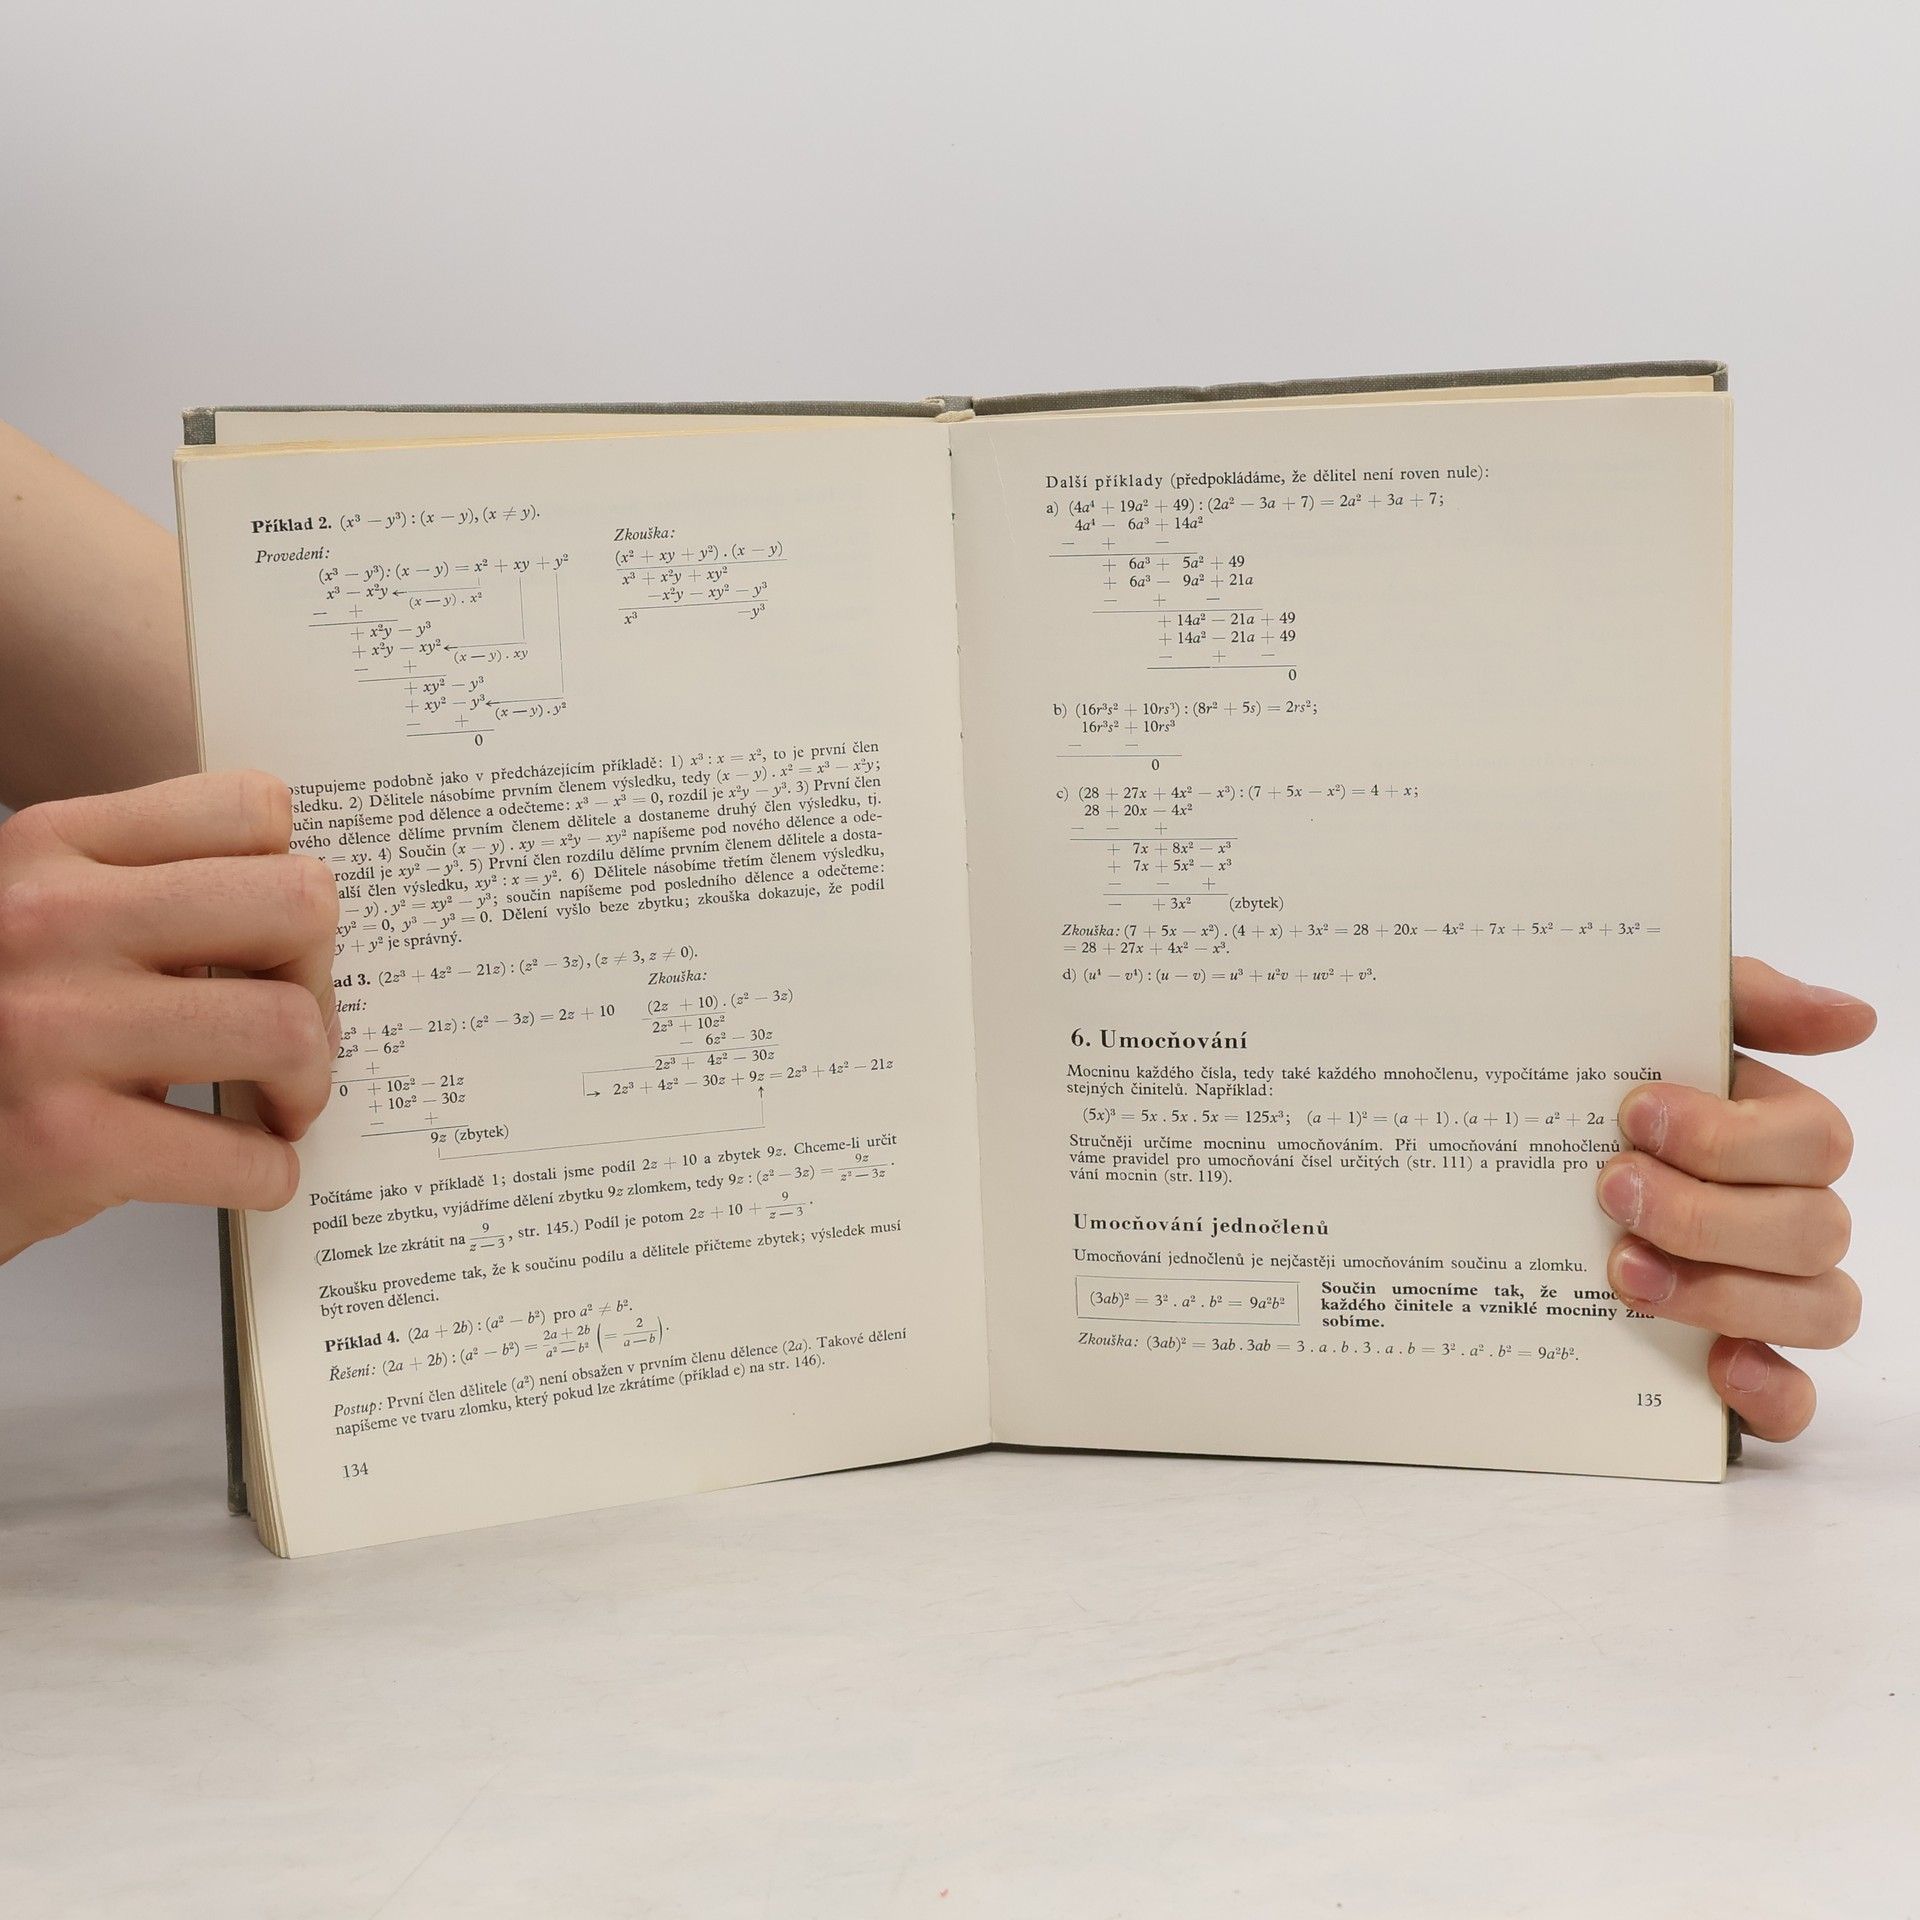 Příklad 2. (x³ − y³) : (x − y), (x ≠ y).
Provedení:
(x³ − y³) : (x − y) = x² + xy + y²
x³ − x²y
(x − y) . x²
− +
+ x²y − y³
+ x²y − xy²
(x − y) . xy
− +
+ xy² − y³
+ xy² − y³
(x − y) . y²
− +
0
Zkouška:
(x² + xy + y²) . (x − y)
x³ + x²y + xy²
−x²y − xy² − y³
x³ −y³
postupujeme podobně jako v předcházejícím příkladě: 1) x³ : x = x², to je první člen
2) Dělitele násobíme prvním členem výsledku, tedy (x − y) . x² = x³ − x²y;
napíšeme pod dělence a odečteme: x³ − x³ = 0, rozdíl je x²y − y³. 3) První člen
dělence dělíme prvním členem dělitele a dostaneme druhý člen výsledku, tj.
= xy. 4) Součin (x − y) . xy = x²y − xy² napíšeme pod nového dělence a ode-
rozdíl je xy² − y³. 5) První člen rozdílu dělíme prvním členem dělitele a dosta-
člen výsledku, xy² : x = y². 6) Dělitele násobíme třetím členem výsledku,
− y) . y² = xy² − y³; součin napíšeme pod posledního dělence a odečteme:
xy² = 0, y³ − y³ = 0. Dělení vyšlo beze zbytku; zkouška dokazuje, že podíl
y + y² je správný.
3. (2z³ + 4z² − 21z) : (z² − 3z), (z ≠ 3, z ≠ 0).
z³ + 4z² − 21z) : (z² − 3z) = 2z + 10
2z³ − 6z²
− +
0 + 10z² − 21z
+ 10z² − 30z
− +
9z (zbytek)
Zkouška:
(2z + 10) . (z² − 3z)
2z³ + 10z²
− 6z² − 30z
2z³ + 4z² − 30z
2z³ + 4z² − 30z + 9z = 2z³ + 4z² − 21z
Počítáme jako v příkladě 1; dostali jsme podíl 2z + 10 a zbytek 9z. Chceme-li určit
podíl beze zbytku, vyjádříme dělení zbytku 9z zlomkem, tedy 9z : (z² − 3z) = 9z / z² − 3z.
(Zlomek lze zkrátit na 9 / z − 3, str. 145.) Podíl je potom 2z + 10 + 9 / z − 3.
Zkoušku provedeme tak, že k součinu podílu a dělitele přičteme zbytek; výsledek musí
být roven dělenci.
Příklad 4. (2a + 2b) : (a² − b²) pro a² ≠ b².
Řešení: (2a + 2b) : (a² − b²) = 2a + 2b / a² − b² (= 2 / a − b).
Postup: První člen dělitele (a²) není obsažen v prvním členu dělence (2a). Takové dělení
napíšeme ve tvaru zlomku, který pokud lze zkrátíme (příklad e) na str. 146).
134
Další příklady (předpokládáme, že dělitel není roven nule):
a) (4a⁴ + 19a² + 49) : (2a² − 3a + 7) = 2a² + 3a + 7;
4a⁴ − 6a³ + 14a²
− + −
+ 6a³ + 5a² + 49
+ 6a³ − 9a² + 21a
− + −
+ 14a² − 21a + 49
+ 14a² − 21a + 49
− + −
0
b) (16r³s² + 10rs³) : (8r² + 5s) = 2rs²;
16r³s² + 10rs³
− −
0
c) (28 + 27x + 4x² − x³) : (7 + 5x − x²) = 4 + x;
28 + 20x − 4x²
− − +
+ 7x + 8x² − x³
+ 7x + 5x² − x³
− − +
− + 3x² (zbytek)
Zkouška: (7 + 5x − x²) . (4 + x) + 3x² = 28 + 20x − 4x² + 7x + 5x² − x³ + 3x² =
= 28 + 27x + 4x² − x³.
d) (u⁴ − v⁴) : (u − v) = u³ + u²v + uv² + v³.
6. Umocňování
Mocninu každého čísla, tedy také každého mnohočlenu, vypočítáme jako součin
stejných činitelů. Například:
(5x)³ = 5x . 5x . 5x = 125x³; (a + 1)² = (a + 1) . (a + 1) = a² + 2a +
Stručněji určíme mocninu umocňováním. Při umocňování mnohočlenů
váme pravidel pro umocňování čísel určitých (str. 111) a pravidla pro
vání mocnin (str. 119).
Umocňování jednočlenů
Umocňování jednočlenů je nejčastěji umocňováním součinu a zlomku.
(3ab)² = 3² . a² . b² = 9a²b²
Součin umocníme tak, že
každého činitele a vzniklé mocniny
sobíme.
Zkouška: (3ab)² = 3ab . 3ab = 3 . a . b . 3 . a . b = 3² . a² . b² = 9a²b².
135